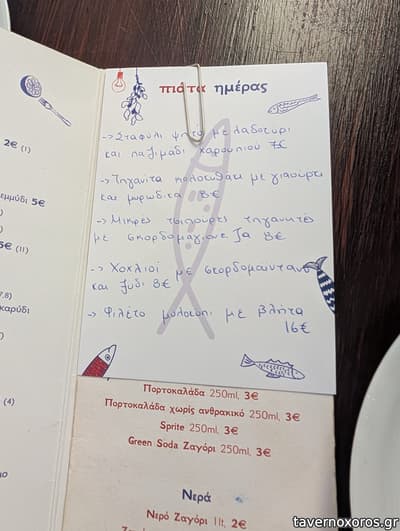 πιάτα ημέρας
→ Σταφύλι ψητό με λαδοτύρι
και παξιμάδι χαρουπιού 7€
→ Τηγανιτά κολοκυθάκι με γιαούρτι
και μυρωδικά 8€
→ Μικρές τσιπούρες τηγανιτές
με σκορδομαγιονέζα 8€
→ Χοχλιοί με σκορδομάιντανο
και ξύδι 8€
→ Φιλέτο μολοκόπι με βλήτα
16€
2€ (1)
εμμύδι 5€
5€ (11)
7,8)
καρύδι
(4)
Πορτοκαλάδα 250ml, 3€
Πορτοκαλάδα χωρίς ανθρακικό 250ml, 3€
Sprite 250ml, 3€
Green Soda Ζαγόρι 250ml, 3€
Νερά
Νερό Ζαγόρι 1lt, 2€
tavernoxoros.gr